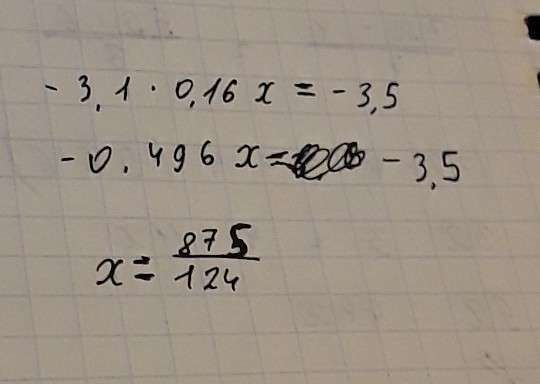 - 3,1 · 0,16 x = - 3,5
- 0.496 x = - 3,5
x = 875/124